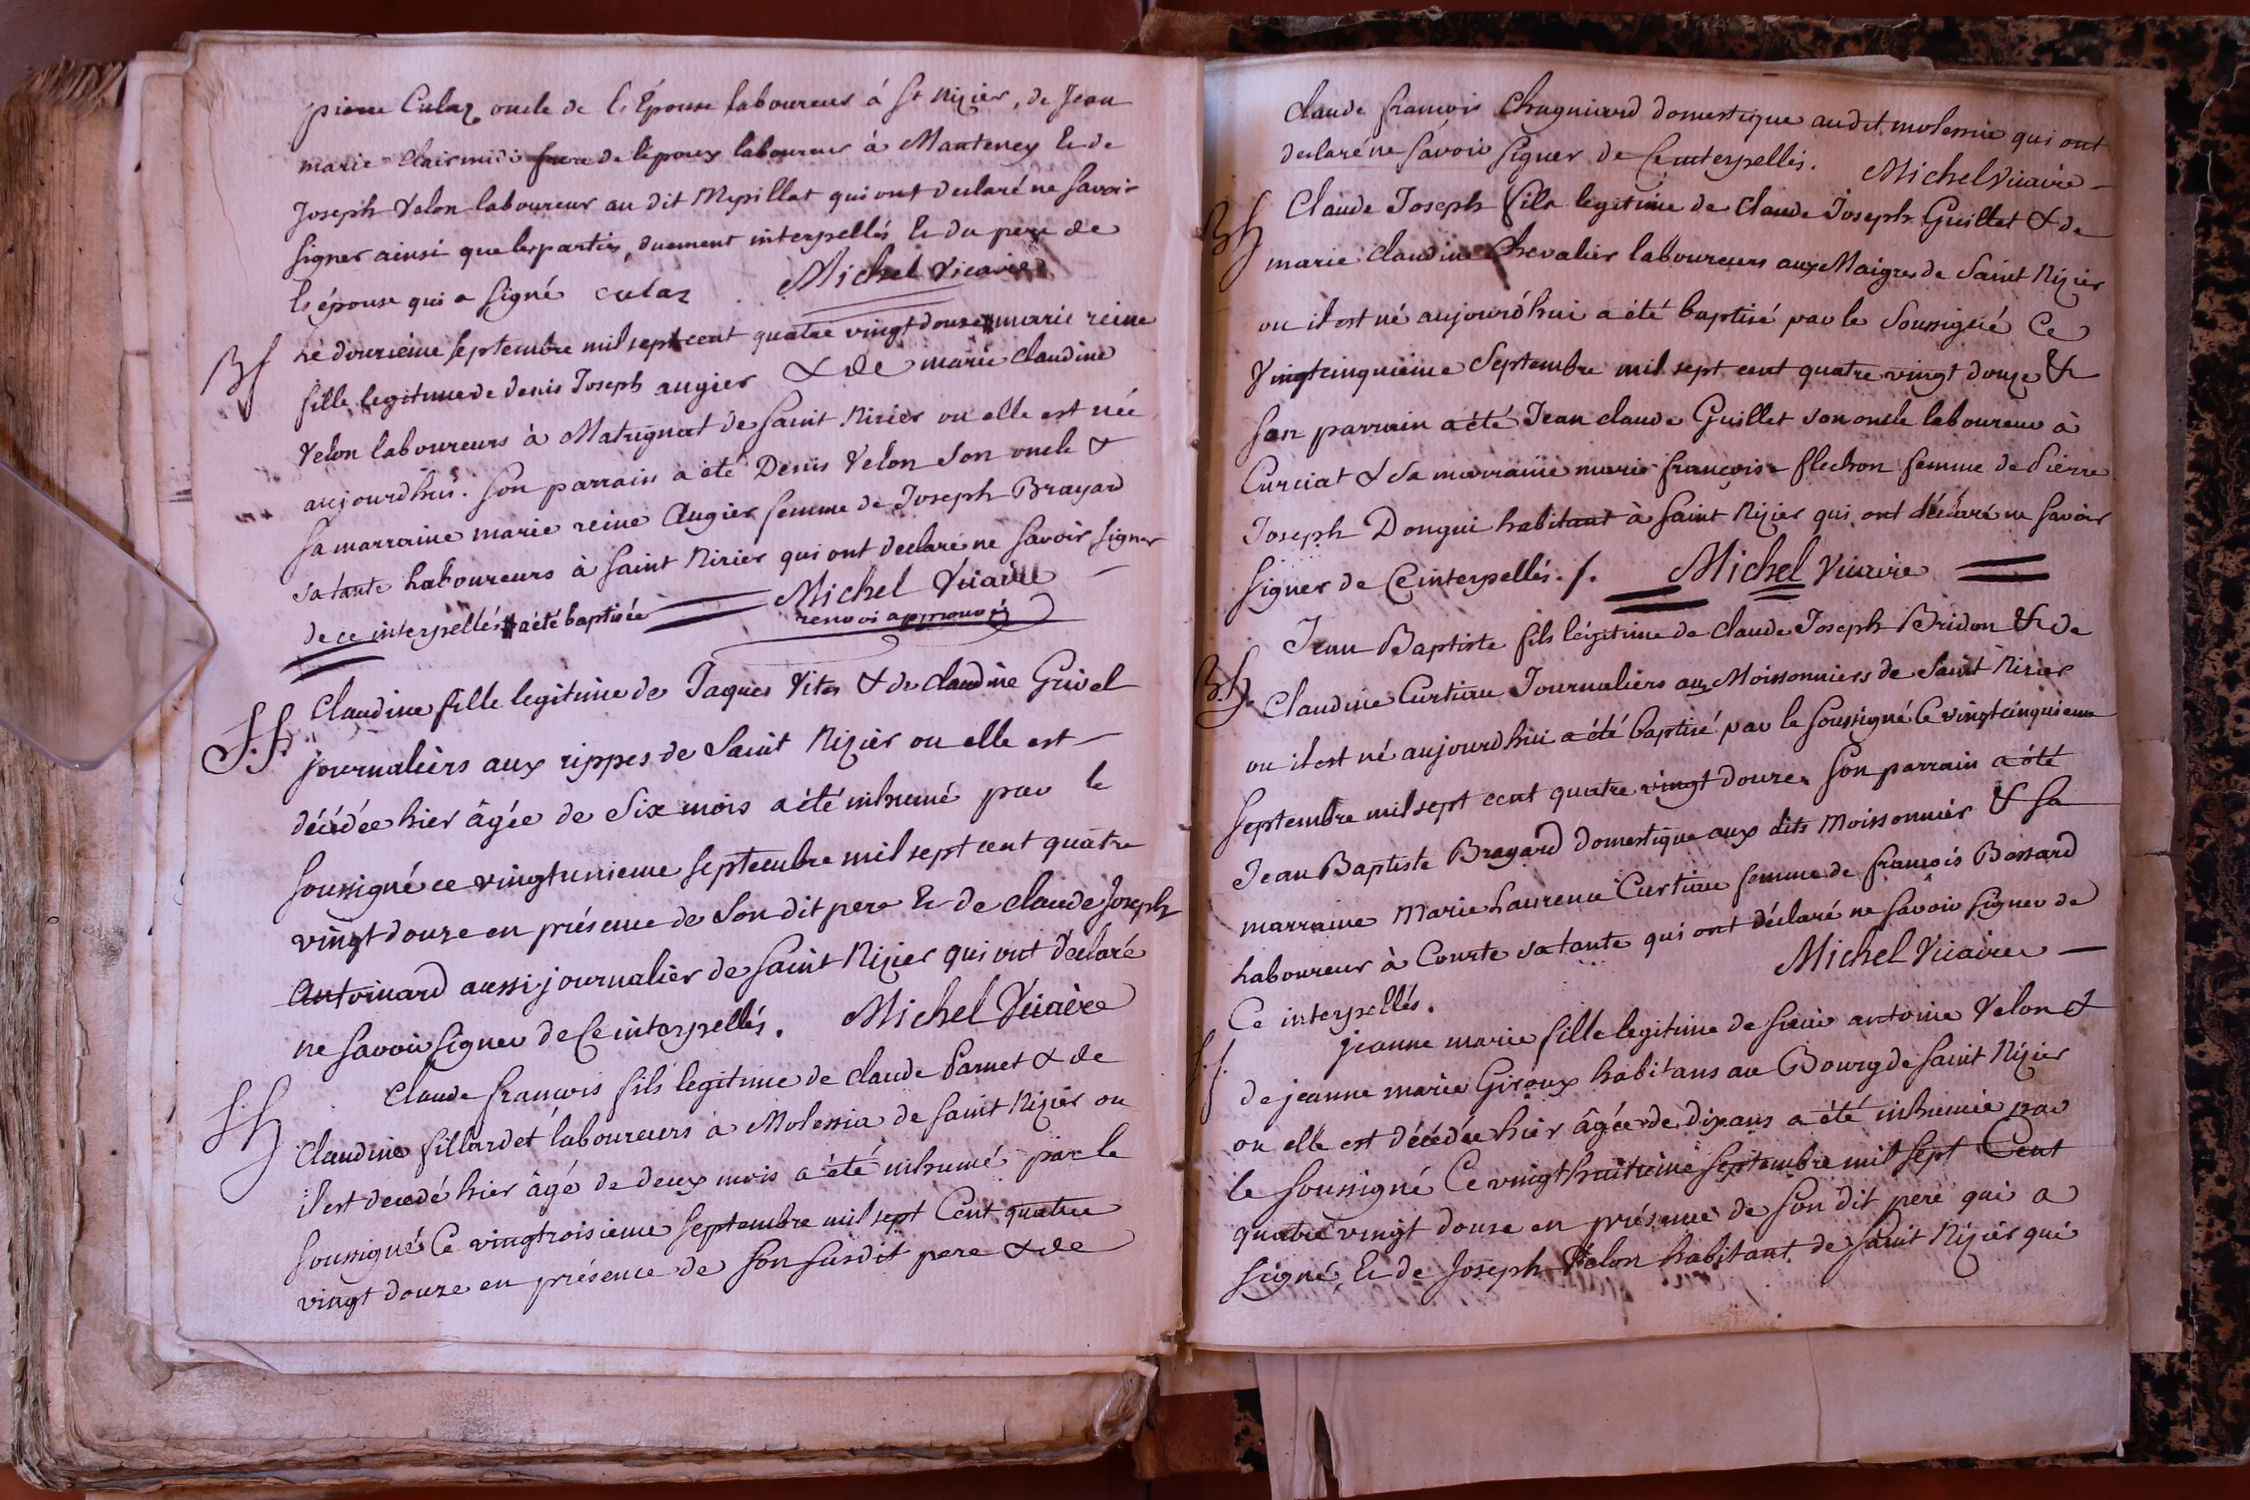 pierre Culaz oncle de l'Épouse laboureur á St Nizier, de Jean
marie Clairmidi frere de l'époux laboureur à Manteney & de
Joseph Velon laboureur au dit Mépillat qui ont declaré ne savoir
signer ainsi que les parties, duement interpellés & du pere de
l'épouse qui a signé culaz Michel Vicaire
Bf
Le douzieme septembre mil sept cent quatre vingt douze # marie reine
fille legitime de denis Joseph augier & de marie claudine
Velon laboureurs à Matrignat de Saint Nizier ou elle est née
aujourdhui. son parrain a été Denis Velon son oncle &
sa marraine marie reine Augier femme de Joseph Brayard
sa tante Laboureurs à Saint Nizier qui ont declaré ne savoir signer
de ce interpellés # a été baptisée Michel Vicaire
renvoi approuvé
S.f.
Claudine fille legitime de Jaques Vitte & de claudine Grivel
journaliers aux rippes de Saint Nizier ou elle est
décédée hier âgée de six mois a été inhumé par le
soussigné ce vingtunieme septembre mil sept cent quatre
vingt douze en présence de son dit pere & de claude Joseph
Antoinard aussi journalier de saint Nizier qui ont déclaré
ne savoir signer de Ce interpellés. Michel Vicaire
S.h
Claude francois fils legitime de claude Parnet & de
Claudine fillardet laboureurs à Molessia de saint Nizier ou
il est decedé hier âgé de deux mois a été inhumé par le
soussigné Ce vingtroisieme septembre mil sept Cent quatre
vingt douze en présence de son susdit pere & de
claude francois Chagniard domestique audit molessia qui ont
declaré ne savoir signer de Ce interpellés. Michel Vicaire
Bh
Claude Joseph fils legitime de claude Joseph Guillet & de
marie claudine Chevalier laboureurs aux Maigres de Saint Nizier
ou il est né aujourd'hui a été baptisé par le soussigné Ce
Vingtcinquieme Septembre mil sept cent quatre vingt douze &
son parrain a été Jean claude Guillet son oncle laboureur à
Curciat & sa marraine marie françoise flechon femme de Pierre
Joseph Dongui habitant à saint Nizier qui ont déclaré ne savoir
signer de Ce interpellés./. Michel Vicaire
B.h.
Jean Baptiste fils légitime de claude Joseph Bridon & de
Claudine Curtiau Journaliers aux Moissonniers de Saint Nizier
ou il est né aujourdhui a été baptisé par le soussigné Ce vingtcinquieme
septembre mil sept cent quatre vingt douze. son parrain a été
Jean Baptiste Bragard domestique aux dits Moissonnier & sa
marraine Marie Laurence Curtiau femme de françois Bossard
Laboureur à Courte sa tante qui ont déclaré ne savoir signer de
Ce interpellés. Michel Vicaire
S.f.
jeanne marie fille legitime de sieur antoine Velon &
de jeanne marie Giroux habitans au Bourg de saint Nizier
ou elle est décédée hier âgée de dix ans a été inhumée par
le soussigné Ce vingthuitieme septembre mil sept Cent
quatre vingt douze en présence de son dit pere qui a
signé, & de Joseph Velon habitant de saint Nizier qui